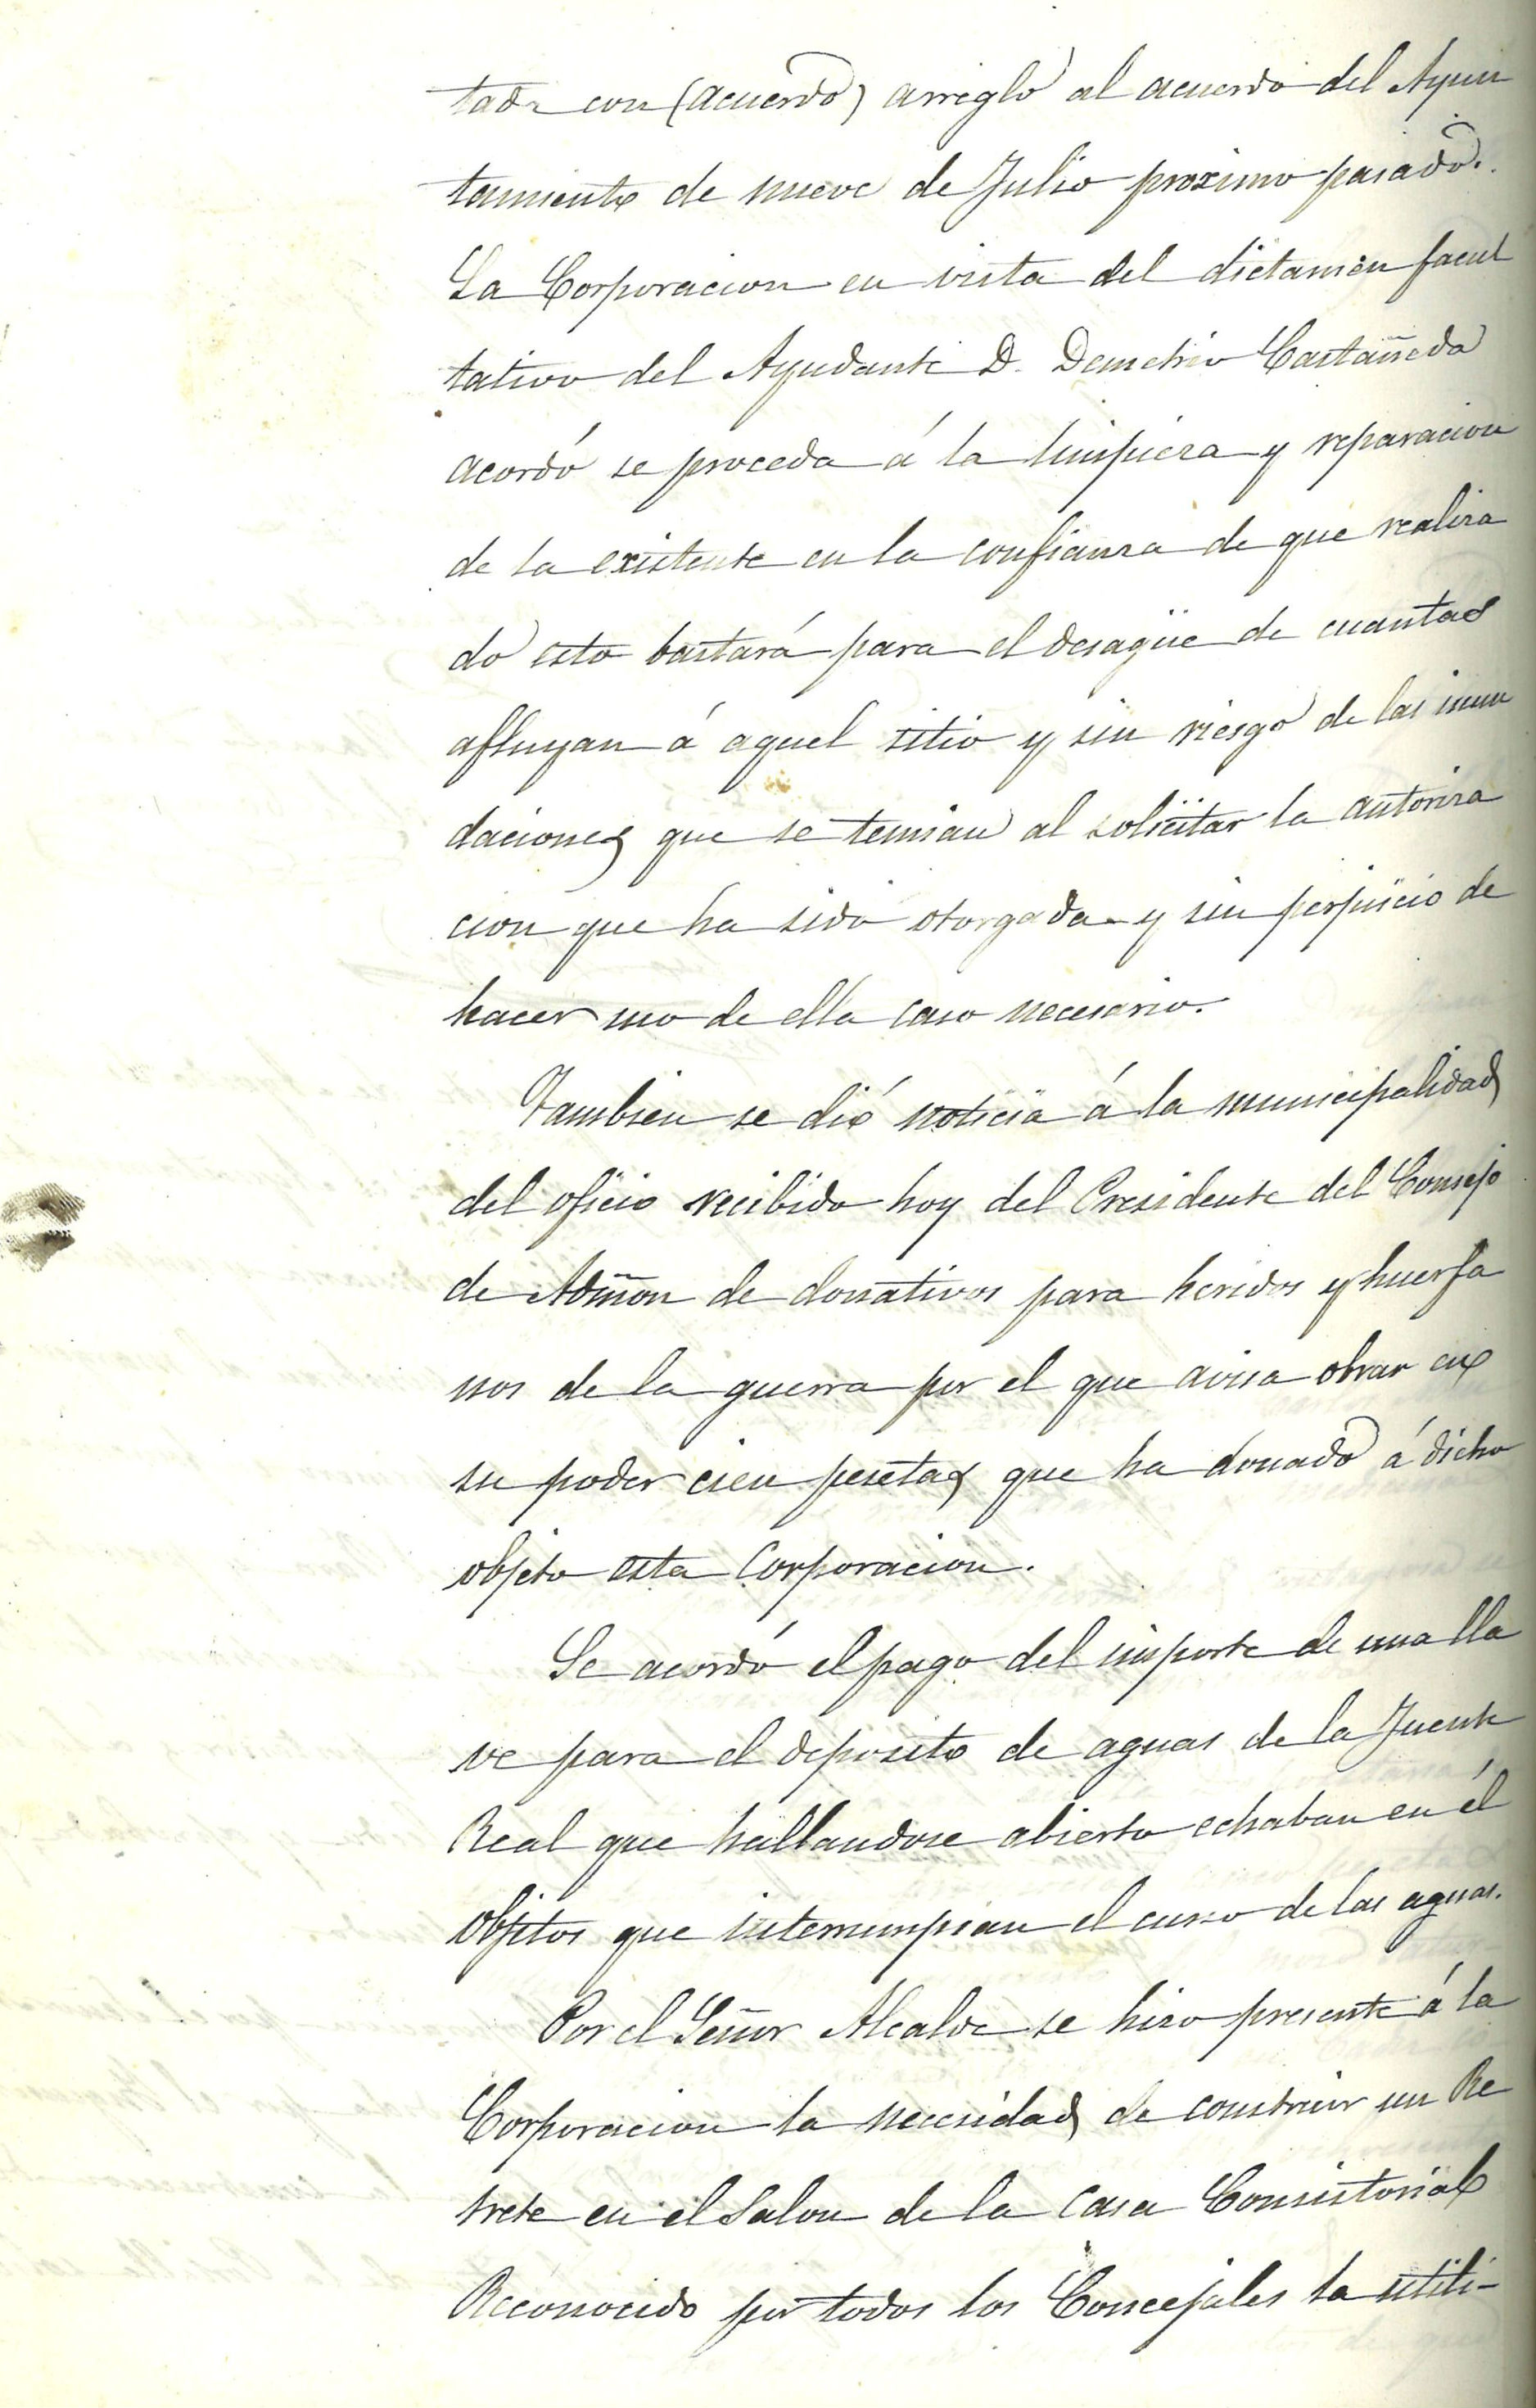 tado con (acuerdo) arreglo al acuerdo del Ayun
tamiento de nueve de Julio proximo pasado.
La Corporacion en vista del dictamen facul
tativo del Ayudante D. Demetrio Castañeda
acordó se proceda á la limpieza y reparacion
de la existente en la confianza de que realiza
do esto bastará para el desagüe de cuantas
afluyan á aquel sitio y sin riesgo de las inun
daciones que se temian al solicitar la autoriza
cion que ha sido otorgada y sin perjuicio de
hacer uso de ella caso necesario.
Tambien se dió noticia á la municipalidad
del oficio recibido hoy del Presidente del Consejo
de Admon de donativos para heridos y huerfa
nos de la guerra por el que avisa obrar en
su poder cien pesetas que ha donado á dicho
objeto esta Corporacion.
Se acordó el pago del importe de una lla
ve para el deposito de aguas de la Fuente
Real que hallandose abierto echaban en él
objetos que interrumpian el curso de las aguas.
Por el Señor Alcalde se hizo presente á la
Corporacion la necesidad de construir un Re
trete en el Salon de la Casa Consistorial
Reconocido por todos los Concejales la utili-